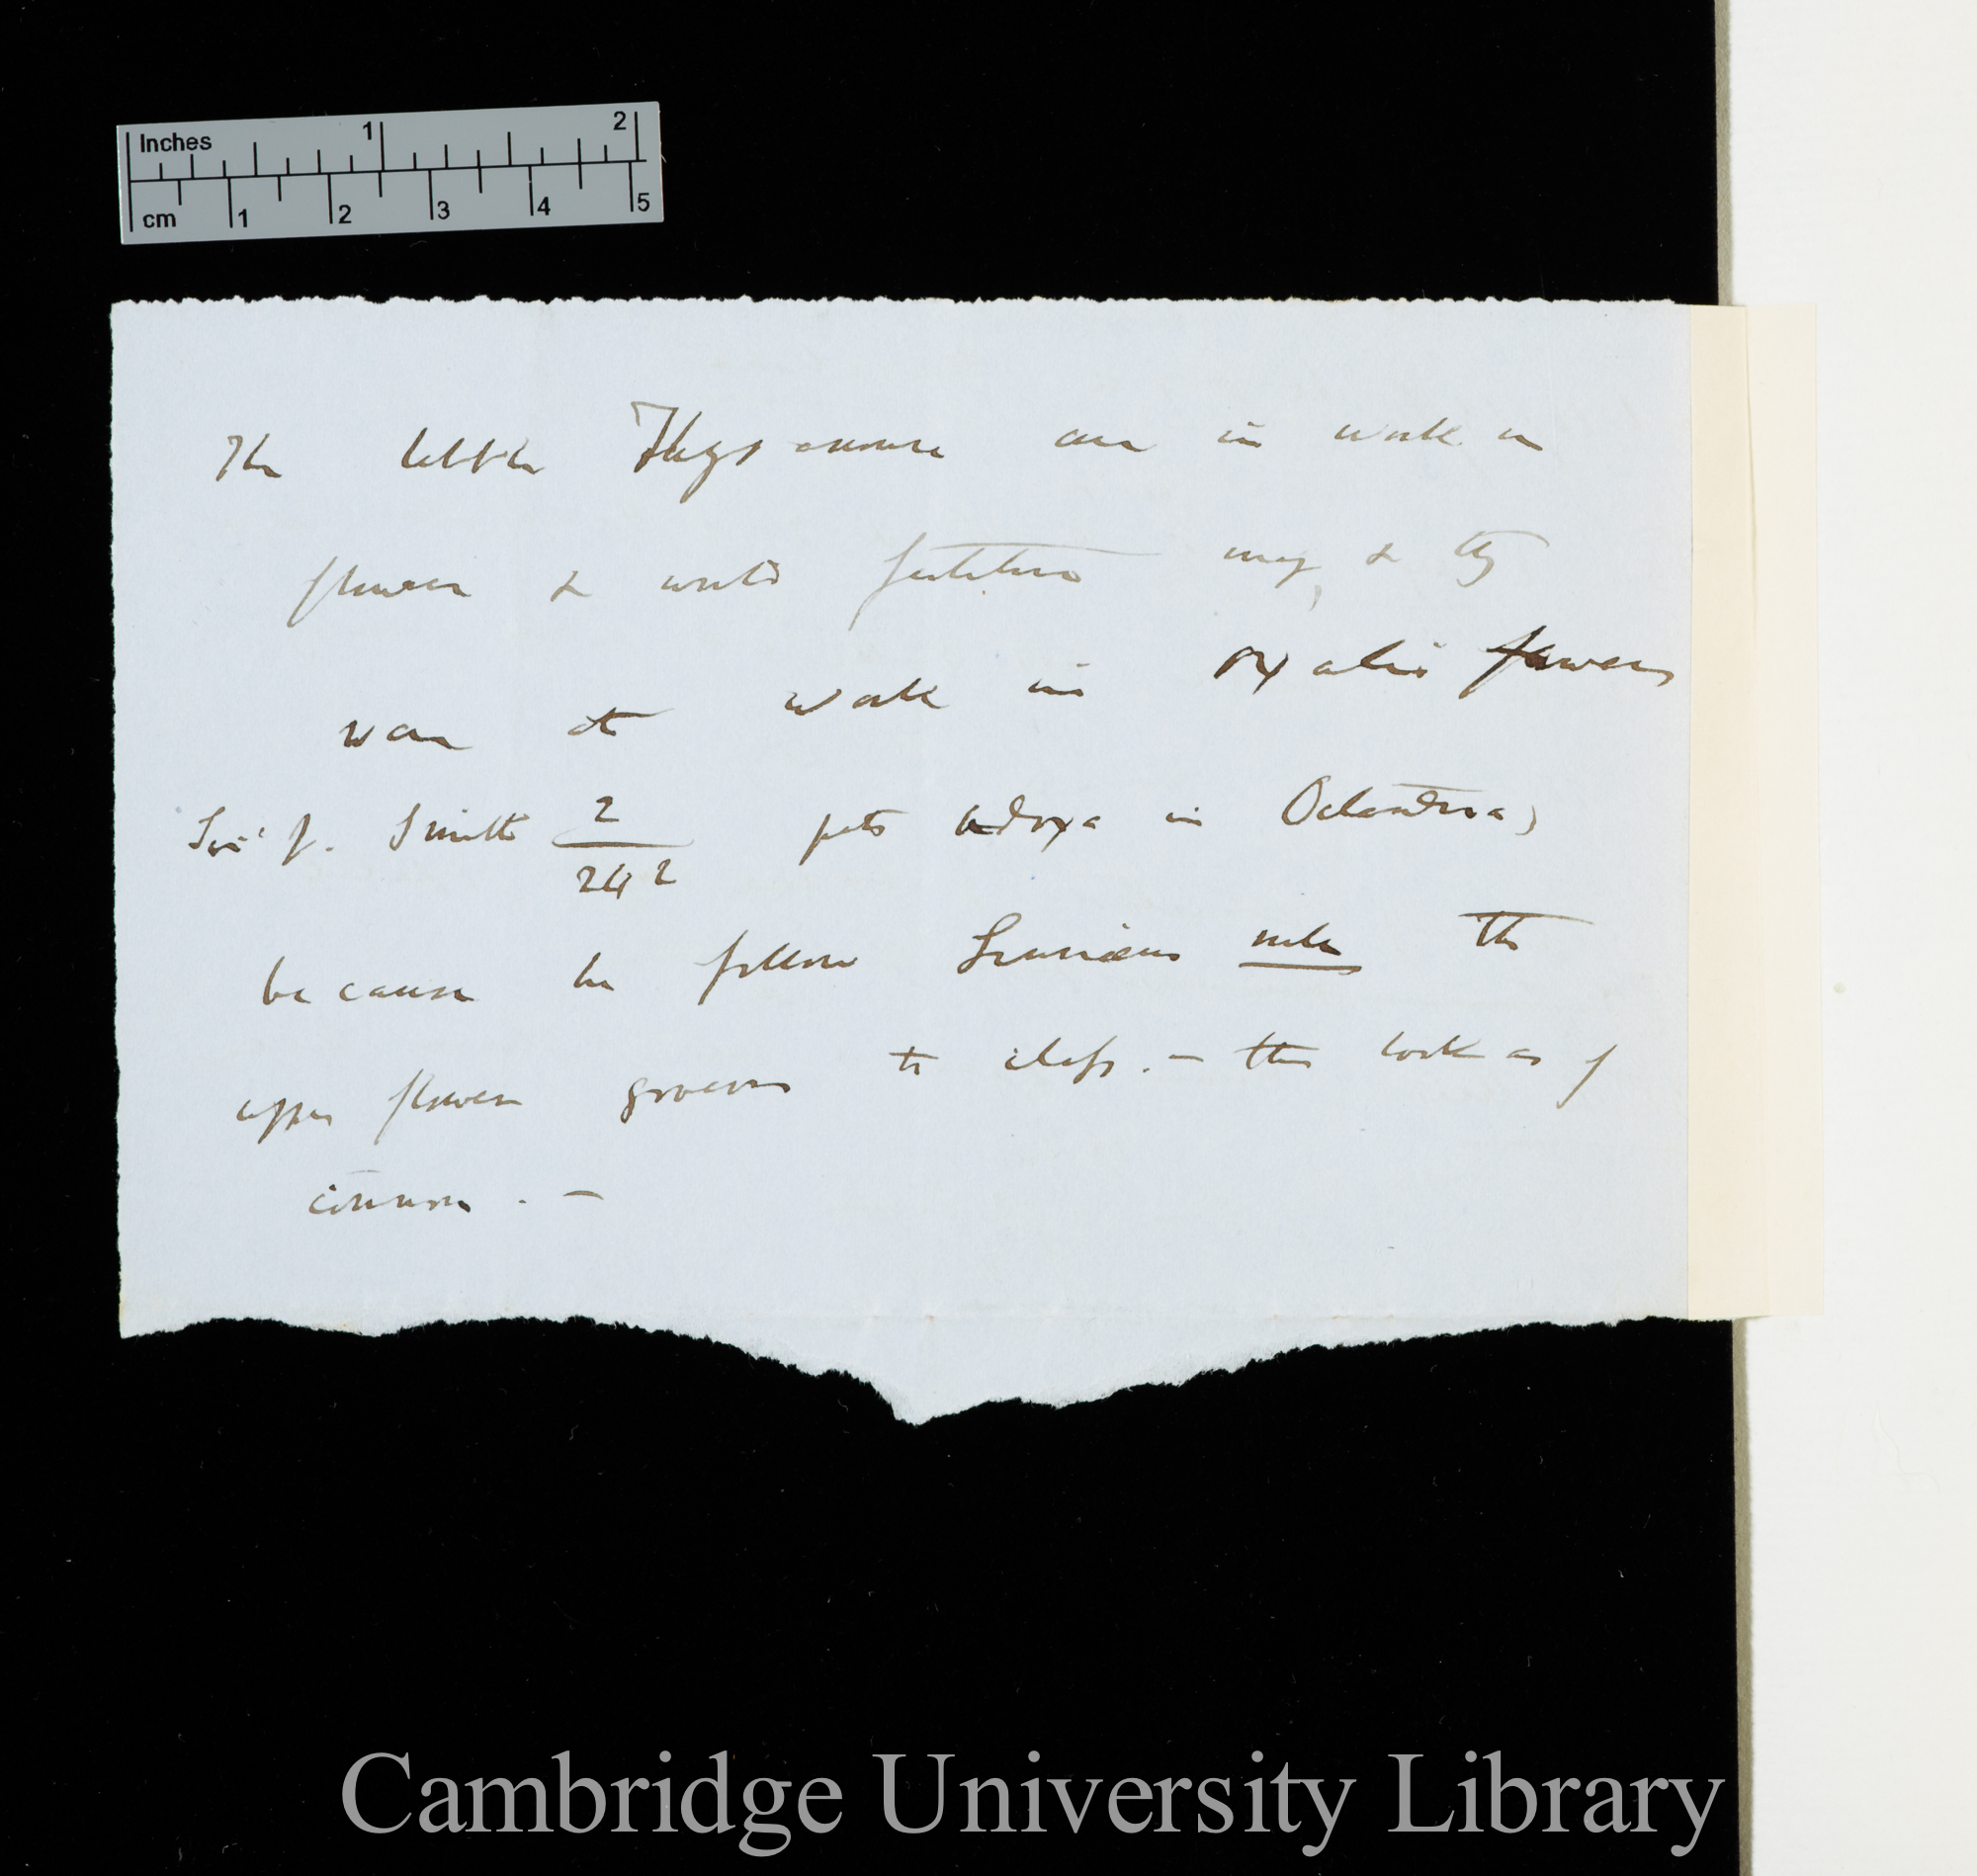 Inches 1 2
cm 1 2 3 4 5
The little Thysanoura are in work in
flower & would fertilise many, & they
were at work in Oxalis flowers
Sir J. Smith 2/242 puts Adoxa in Octandria,
because he follows Linnæus rule The
upper flower governs the class. — this looks as if
common. —
Cambridge University Library